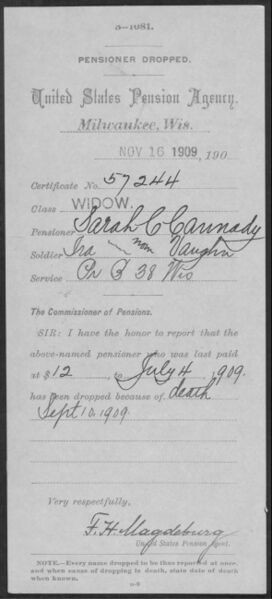 3-1081.
PENSIONER DROPPED.
United States Pension Agency,
Milwaukee, Wis.
NOV 16 1909, 190
Certificate No. 57244
Class WIDOW.
Pensioner Sarah C Cannady
Soldier Ira Vaughn
Service Pr G 38 Wis
The Commissioner of Pensions.
SIR: I have the honor to report that the
above-named pensioner who was last paid
at $12, to July 4, 1909.
has been dropped because of death
Sept 10, 1909.
Very respectfully,
F. H. Magdeburg
United States Pension Agent.
NOTE.—Every name dropped to be thus reported at once,
and when cause of dropping is death, state date of death
when known.